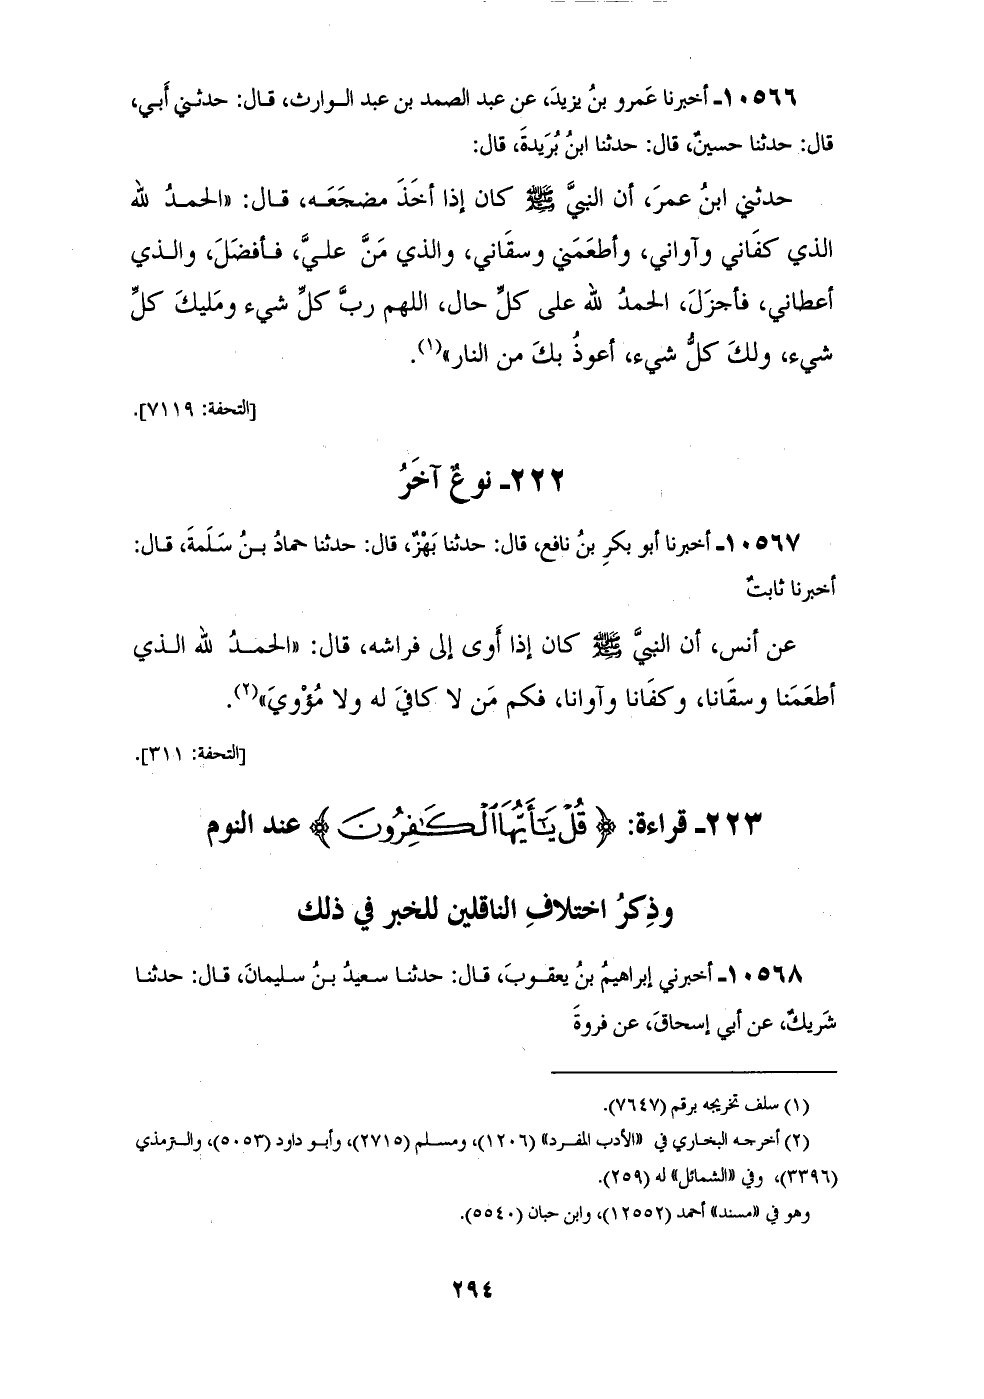 ١٠٥٦٦ـ أخبرنا عَمرو بنُ يزيدَ، عن عبد الصمد بن عبد الـوارث، قـال: حدثـني أَبي،
قال: حدثنا حسينٌ، قال: حدثنا ابنُ بُرَيدةَ، قال:
حدثني ابنُ عمرَ، أن النبيَّ ﷺ كان إذا أخَذَ مضجَعَـه، قـال: «الحمـدُ لله
الذي كفَاني وآواني، وأطعَمَني وسقَاني، والذي مَنَّ علـيَّ، فـأفضَلَ، والـذي
أعطاني، فأجزَلَ، الحمدُ لله على كلِّ حال، اللهم ربَّ كلِّ شيء ومَليكَ كلِّ
شيء، ولكَ كلُّ شيء، أعوذُ بكَ من النار»(١).
[التحفة: ٧١١٩].
٢٢٢ـ نوعٌ آخَرُ
١٠٥٦٧ـ أخبرنا أبو بكرِ بنُ نافع، قال: حدثنا بَهْزٌ، قال: حدثنا حمادُ بـنُ سَـلَمةَ، قـال:
أخبرنا ثابتٌ
عن أنس، أن النبيَّ ﷺ كان إذا أَوى إلى فراشه، قال: «الحمـدُ لله الـذي
أطعَمَنا وسقَانا، وكفَانا وآوانا، فكم مَن لا كافيَ له ولا مُؤْويَ»(٢).
[التحفة: ٣١١].
٢٢٣ـ قراءة: ﴿قُلْ يَـٰٓأَيُّهَا ٱلْكَـٰفِرُونَ﴾ عند النوم
وذِكرُ اختلافِ الناقلين للخبر في ذلك
١٠٥٦٨ـ أخبرني إبراهيمُ بنُ يعقـوبَ، قـال: حدثنـا سـعيدُ بـنُ سـليمانَ، قـال: حدثنـا
شَريكٌ، عن أبي إسحاقَ، عن فروةَ
(١) سلف تخريجه برقم (٧٦٤٧).
(٢) أخرجـه البخـاري في «الأدب المفـرد» (١٢٠٦)، ومسـلم (٢٧١٥)، وأبـو داود (٥٠٥٣)، والـترمذي
(٣٣٩٦)، وفي «الشمائل» له (٢٥٩).
وهو في «مسند» أحمد (١٢٥٥٢)، وابن حبان (٥٥٤٠).
٢٩٤